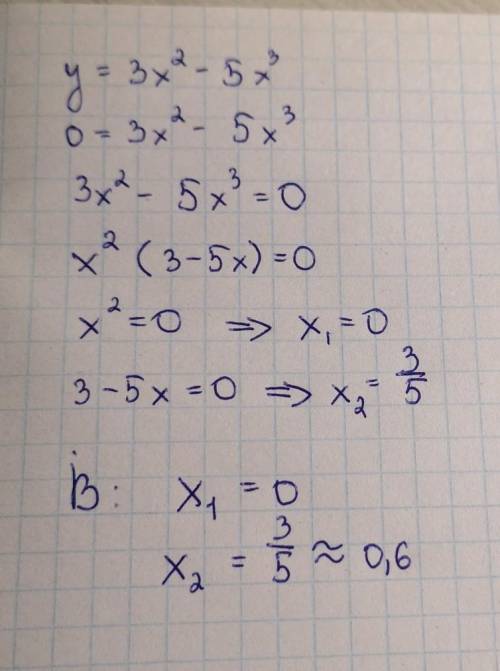 y = 3x² - 5x³
0 = 3x² - 5x³
3x² - 5x³ = 0
x² (3 - 5x) = 0
x² = 0 ⇒ x₁ = 0
3 - 5x = 0 ⇒ x₂ = 3/5
В: x₁ = 0
x₂ = 3/5 ≈ 0,6